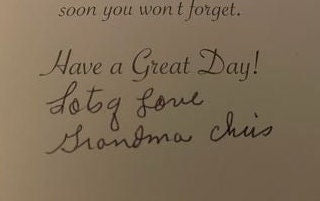 soon you won't forget.
Have a Great Day!
Lotsq Love
Grandma Chris